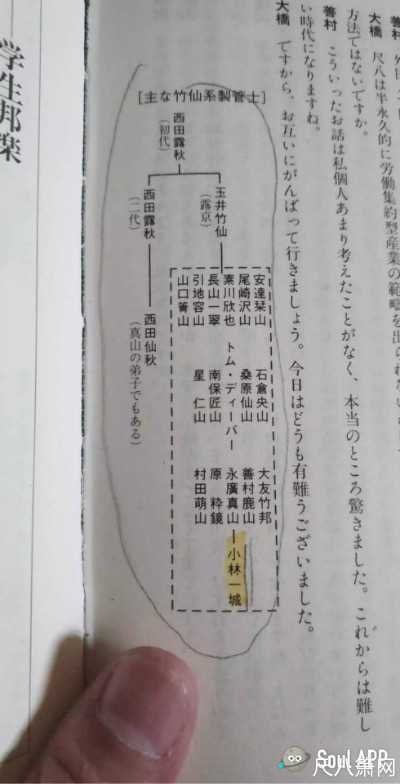 善村
大橋 尺八は半永久的に労働集約型産業の範疇を出られない
方法ではないですか。
善村 こういったお話は私個人あまり考えたことがなく、本当のところ驚きました。これからは難し
い時代になりますね。
大橋 ですから、お互いにがんばって行きましょう。今日はどうも有難うございました。
[主な竹仙系製管士]
西田露秋
(初代)
玉井竹仙
(露京)
安達栞山 石倉央山 大友竹邦
尾崎沢山 桑原仙山 善村鹿山
素川欣也 トム・ディーバー 永廣真山 小林一城
長山一翠 南保匠山 原粋鏡
引地容山 星仁山 村田萌山
山口箐山
西田露秋
(二代)
西田仙秋
(真山の弟子でもある)
学生邦楽
Soul APP
尺八箫网